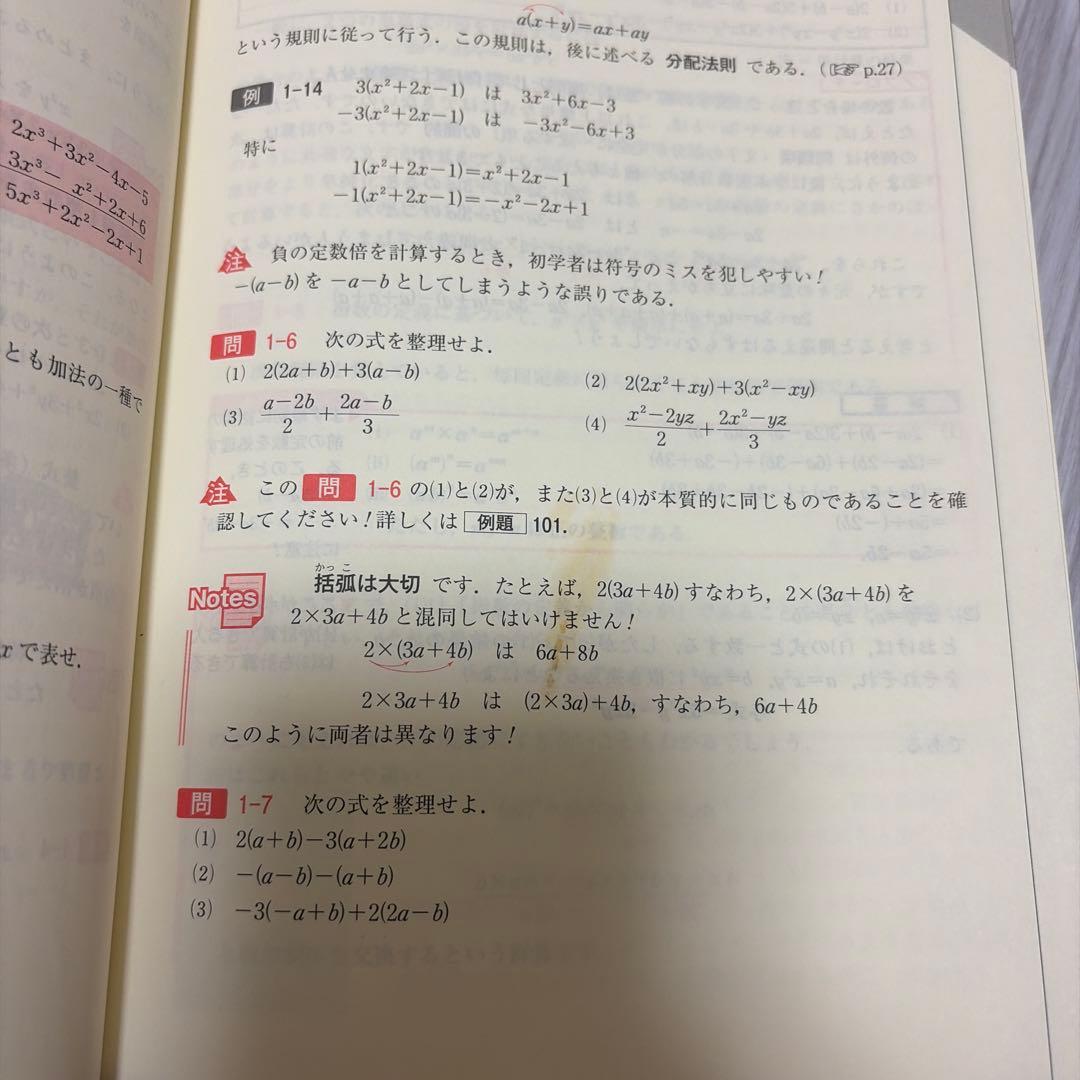 a(x+y)=ax+ay
という規則に従って行う．この規則は，後に述べる 分配法則 である．(☞ p.27)
例 1-14 3(x²+2x−1) は 3x²+6x−3
−3(x²+2x−1) は −3x²−6x+3
特に
1(x²+2x−1)=x²+2x−1
−1(x²+2x−1)=−x²−2x+1
注 負の定数倍を計算するとき，初学者は符号のミスを犯しやすい！
−(a−b) を −a−b としてしまうような誤りである．
問 1-6 次の式を整理せよ．
(1) 2(2a+b)+3(a−b)
(2) 2(2x²+xy)+3(x²−xy)
(3) (a−2b)/2+(2a−b)/3
(4) (x²−2yz)/2+(2x²−yz)/3
注 この 問 1-6 の(1)と(2)が，また(3)と(4)が本質的に同じものであることを確
認してください！詳しくは 例題 101．
Notes かっこ
括弧は大切 です．たとえば，2(3a+4b) すなわち，2×(3a+4b) を
2×3a+4b と混同してはいけません！
2×(3a+4b) は 6a+8b
2×3a+4b は (2×3a)+4b，すなわち，6a+4b
このように両者は異なります！
問 1-7 次の式を整理せよ．
(1) 2(a+b)−3(a+2b)
(2) −(a−b)−(a+b)
(3) −3(−a+b)+2(2a−b)
2x³+3x²−4x−5
3x³− x²+2x+6
5x³+2x²−2x+1
とも加法の一種で
xで表せ．